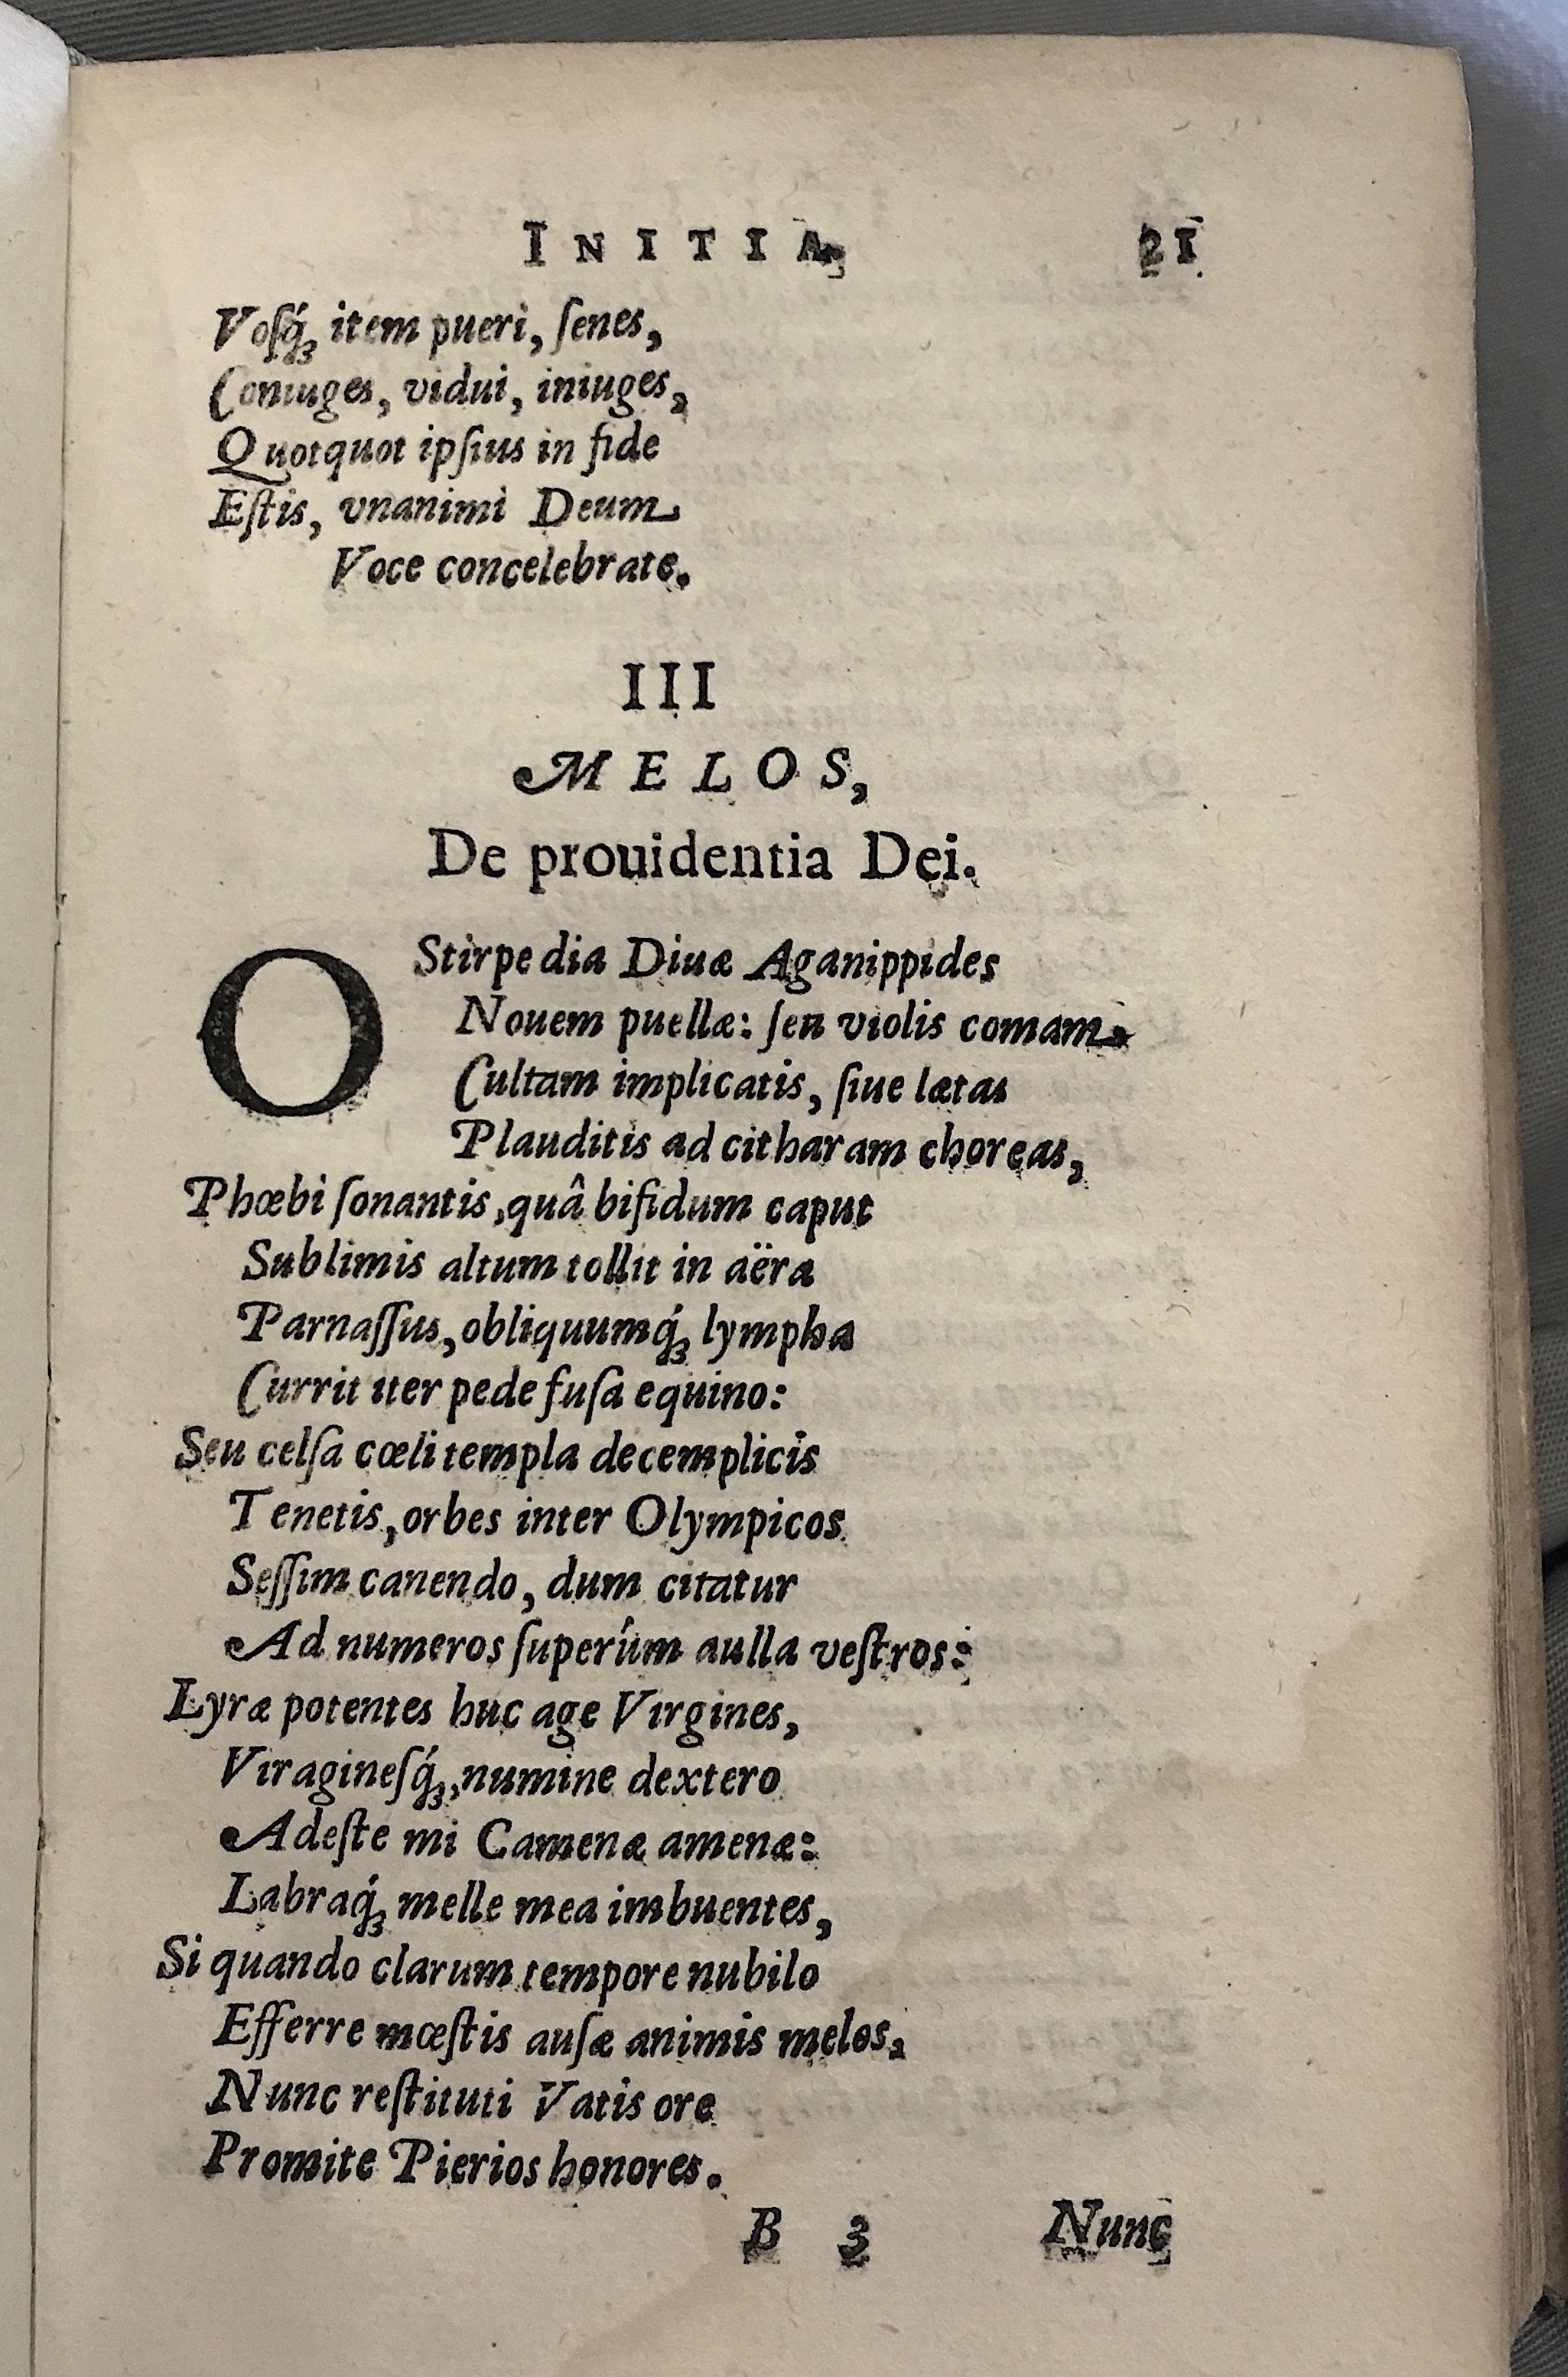 INITIA. 21
Voſq́ꝫ item pueri, ſenes,
Coniuges, vidui, iniuges,
Quotquot ipſius in fide
Eſtis, vnanimi Deum
Voce concelebrate.
III
MELOS,
De prouidentia Dei.
O Stirpe dia Diuæ Aganippides
Nouem puellæ: ſeu violis comam
Cultam implicatis, ſiue lætas
Plauditis ad citharam choreas,
Phœbi ſonantis, quâ bifidum caput
Sublimis altum tollit in aëra
Parnaſſus, obliquumq́ꝫ lympha
Currit iter pede fuſa equino:
Seu celſa cœli templa decemplicis
Tenetis, orbes inter Olympicos
Seſſim canendo, dum citatur
Ad numeros ſuperúm aulla veſtros:
Lyræ potentes huc age Virgines,
Viragineſq́ꝫ, numine dextero
Adeſte mi Camenæ amenæ:
Labraq́ꝫ melle mea imbuentes,
Si quando clarum tempore nubilo
Efferre mœſtis auſæ animis melos,
Nunc reſtituti Vatis ore
Promite Pierios honores.
B 3 Nunc